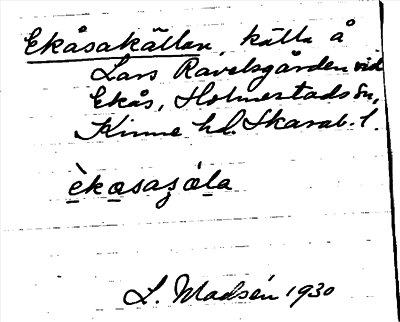 Ekåsakällan, källa å
Lars Ravelsgården vid
Ekås, Holmestads sn,
Kinne hd. Skarab. l.
èkasaʒála
L. Madsén 1930